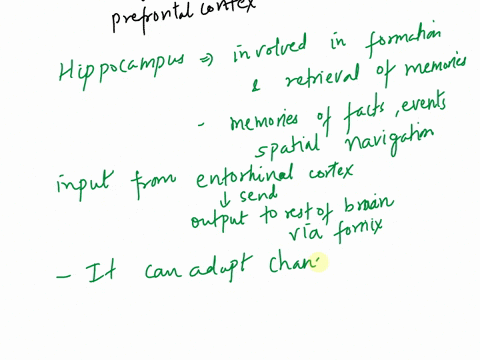 prefrontal cortex
Hippocampus ⇒ involved in formation
& retrieval of memories
- memories of facts, events
spatial navigation
input from entorhinal cortex
↓ send
output to rest of brain
via fornix
- It can adapt chan